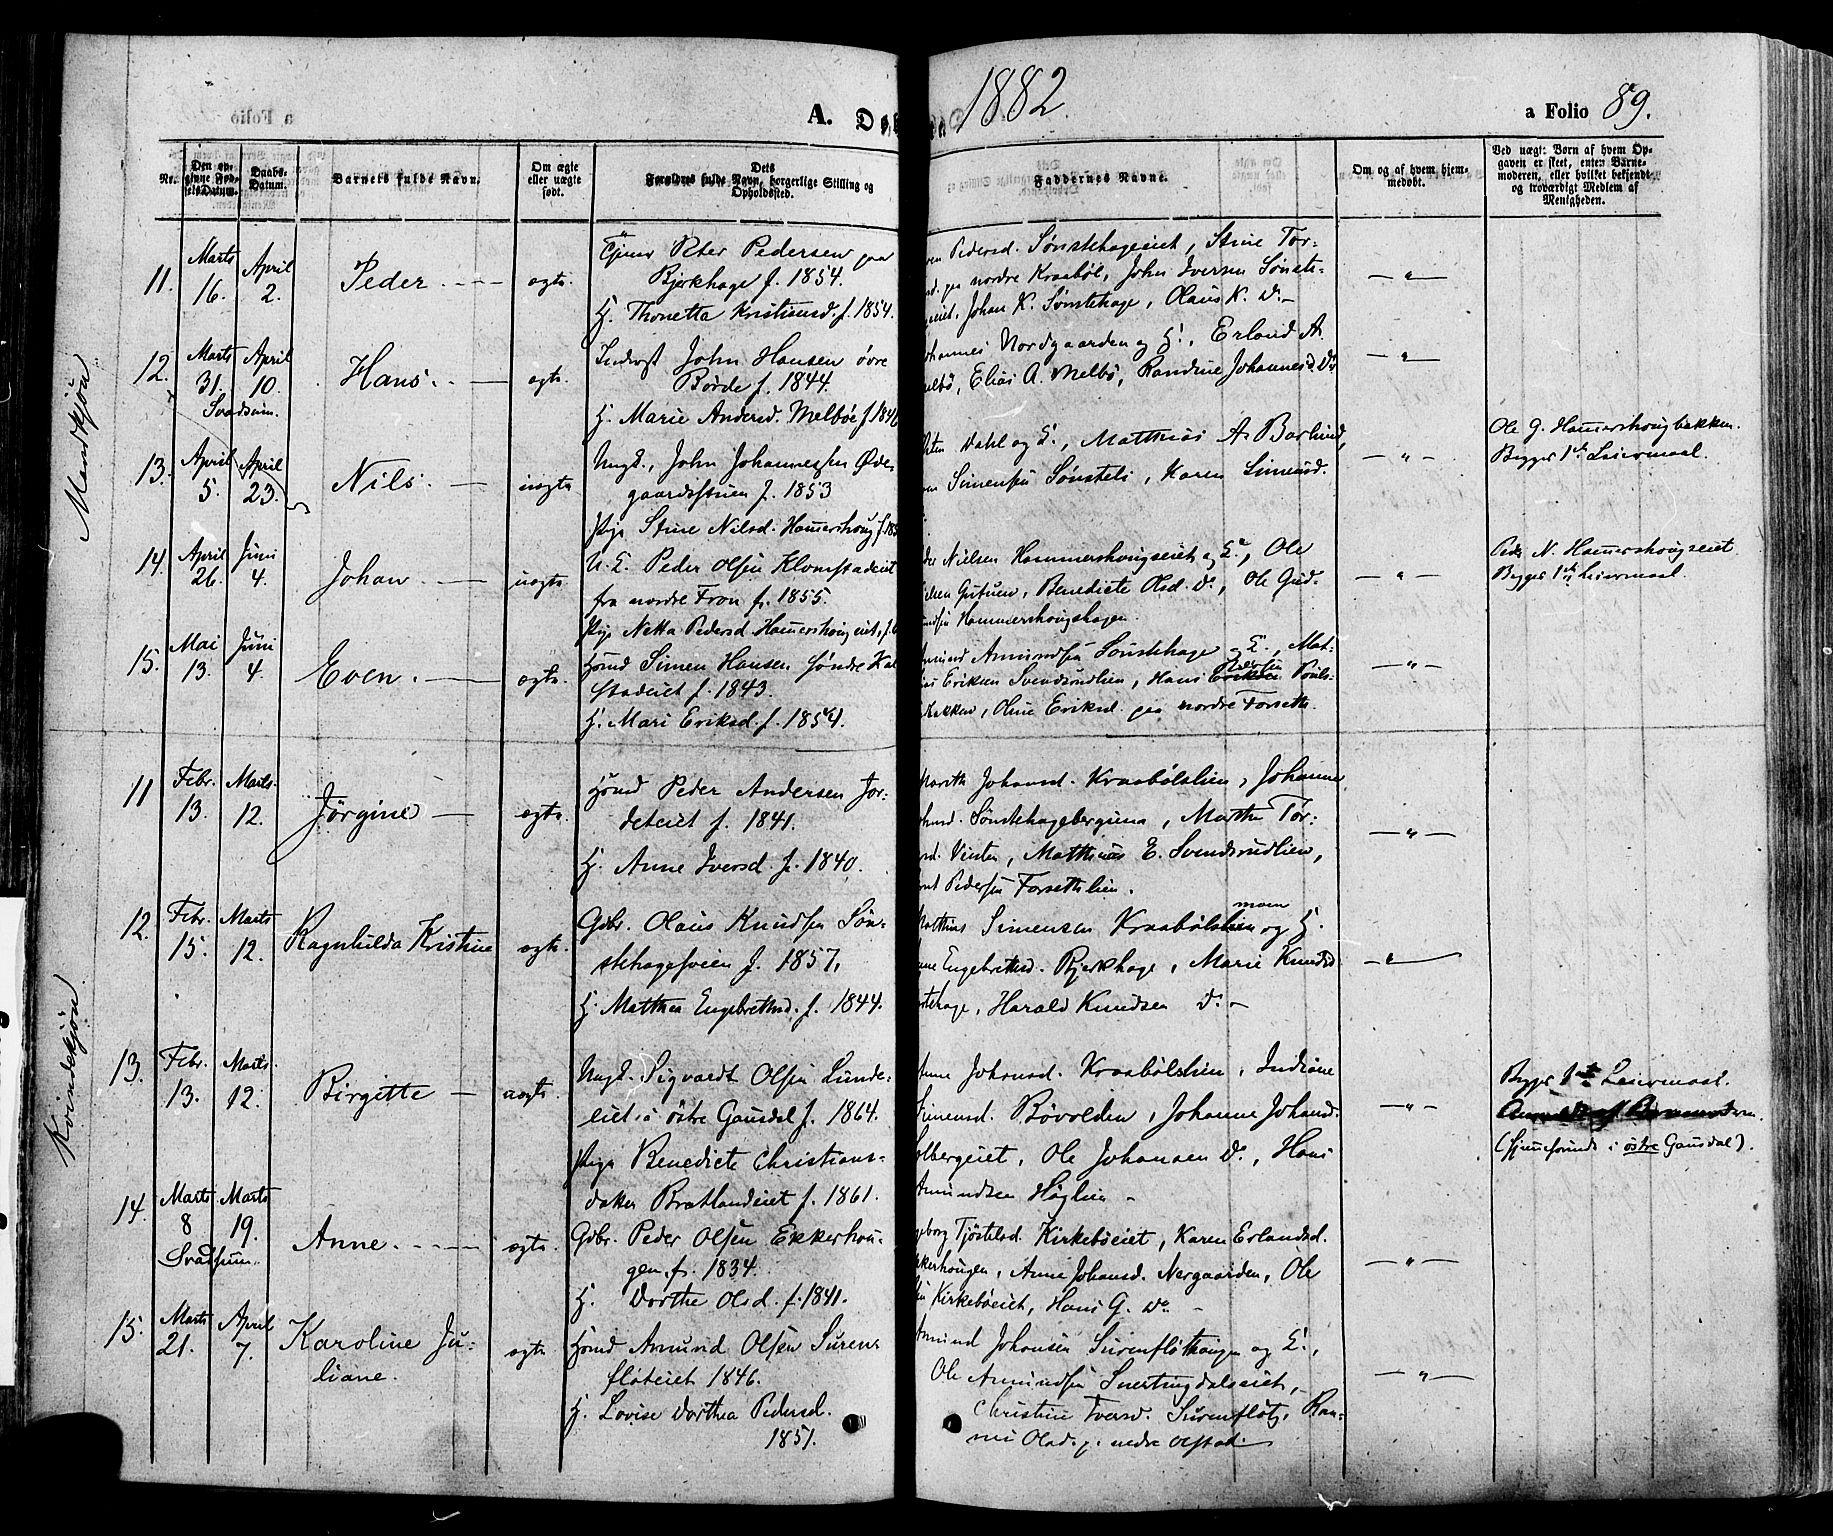 1882.
A. Døb
a Folio 89.
No.
Den opgivne Fødsels Datum.
Daabs-Datum.
Barnets fulde Navn.
Om ægte eller uægte født.
Dets Forældres fulde Navn, borgerlige Stilling og Opholdssted.
Faddernes Navne.
Om og af hvem hjemmedøbt.
Ved uægt: Børn af hvem Opgaven er skeet, enten Barnemoderen, eller hvilket bekjendt og troværdigt Medlem af Menigheden.
Mandkjøn
11. Marts 16. April 2. Peder. ægte.
Peter Pedersen paa
Bjerkhage f. 1854.
H. Thonetta Kristiansd. f. 1854.
Pedersd. Sønstehageeiet, Stine Tor-
nordre Kraabøl, John Iversen Sønste-
Johan K. Sønstehage, Olaus K. Do –
12. Marts 31. April 10. Svadsum. Hans. ægte.
Inderst John Hansen øvre
Børde f. 1844.
H. Marie Andersd. Melbøe f.
Nordgaarden og H., Erland A.
Elias A. Melbø, Randine Johannesd. Do
13. April 5. April 23. Nils. uægte
Ungk., John Johannessen Øde-
gaardsstuen f. 1853
Pige Stine Nilsd. Hamershoug
Dahl og H., Matthias A. Barlund,
Simensen Sønsteli, Karen Simensd.
Ole G. Hamershougbakken.
Begges 1ste Leiermaal.
14. April 26. Juni 4. Johan. uægte.
U. K. Peder Olsen Klomstadeiet
fra nordre Fron f. 1855.
Pige Netta Pedersd Hamershougeiet,
Nielsen Hammershougseiet og H., Ole
Benedicte Olsd. Do, Ole Gud-
Hammershoughagen.
Peder N. Hamershougseiet.
Begges 1ste Leiermaal.
15. Mai 13. Juni 4. Even. ægte.
Hmd Simen Hansen søndre Kal-
stadeiet f. 1843.
H. Mari Eriksd. f. 1854.
Amundsen Sønstehage og H., Mat-
Eriksen Svendsrudlien, Hans Pouls-
bakken, Oline Eriksd. paa nordre Forseth.
Kvindekjøn
11 Febr. 13. Marts 12. Jørgine ægte.
Hmd Peder Andersen Jor-
deteiet f. 1841.
H. Anne Iversd. f. 1840.
Marith Johansd. Kraabølslien, Johanne
Sønstehagebergene, Marthe Tor-
Matthias E. Svendsrudlien,
Pedersen Forsethlien.
12. Febr. 15. Marts 12. Ragnhilda Kristine ægte.
Gdbr. Olaus Knudsen Søn-
stehagesveen f. 1857,
H. Matthea Engebrethsd. f. 1844.
moen
Matthias Simensen Kraabølslien og H.
Engebrethsd. Bjerkhage, Marie Knudsd.
Harald Knudsen Do –
13. Febr. 13. Marts 12. Birgitte uægte.
Ungk. Sigvardt Olsen Lunde-
eiet i østre Gausdal f. 1864.
Pige Benedicte Christians-
datter Bratlandeiet f. 1861.
Anne Johansd. Kraabølslien, Indiane
Simensd. Bøvolden, Johanne Johansd.
Solbergeiet, Ole Johansen Do, Hans
Amundsen Høglien –
Begges 1ste Leiermaal.
(hjemfunde i østre Gausdal).
14. Marts 8 Marts 19. Svadsum. Anne. ægte.
Gdbr. Peder Olsen Ekkerhou-
gen f. 1834.
H. Dorthe Olsd. f. 1841.
Tjøstelsd. Kirkebøeiet, Karen Erlandsd.
Ekkerhougen, Anne Johansd. Nergaarden, Ole
Kirkebøeiet, Hans G. Do –
15. Marts 21. April 7. Karoline Ju-
liane. ægte.
Hmd Amund Olsen Suren-
fløteiet 1846.
H. Lovise Dorthea Pedersd.
1851.
Amund Johansen Surenfløthaugen og H.,
Ole Amundsen Snertingdalseiet,
Christine Iversd. Surenfløt, Ran-
nei Olsd. p. nedre Olstad.